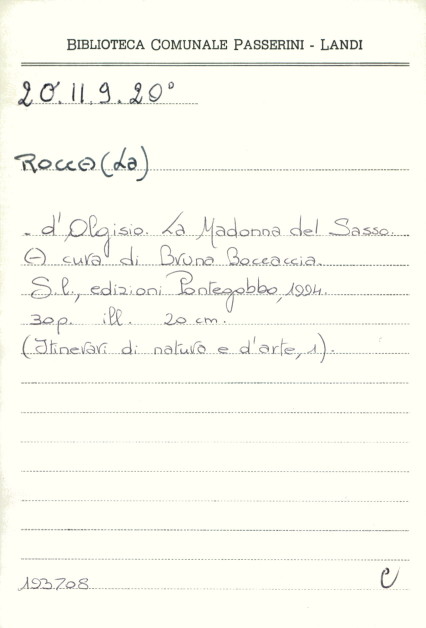 BIBLIOTECA COMUNALE PASSERINI - LANDI
20.II.9.20°
ROCCA (La)
- d'Olgisio. La Madonna del Sasso.
A cura di Bruna Boccaccia.
S.l., edizioni Pontegobbo, 1994.
30p. ill. 20 cm.
(Itinerari di natura e d'arte, 1).
193708 C